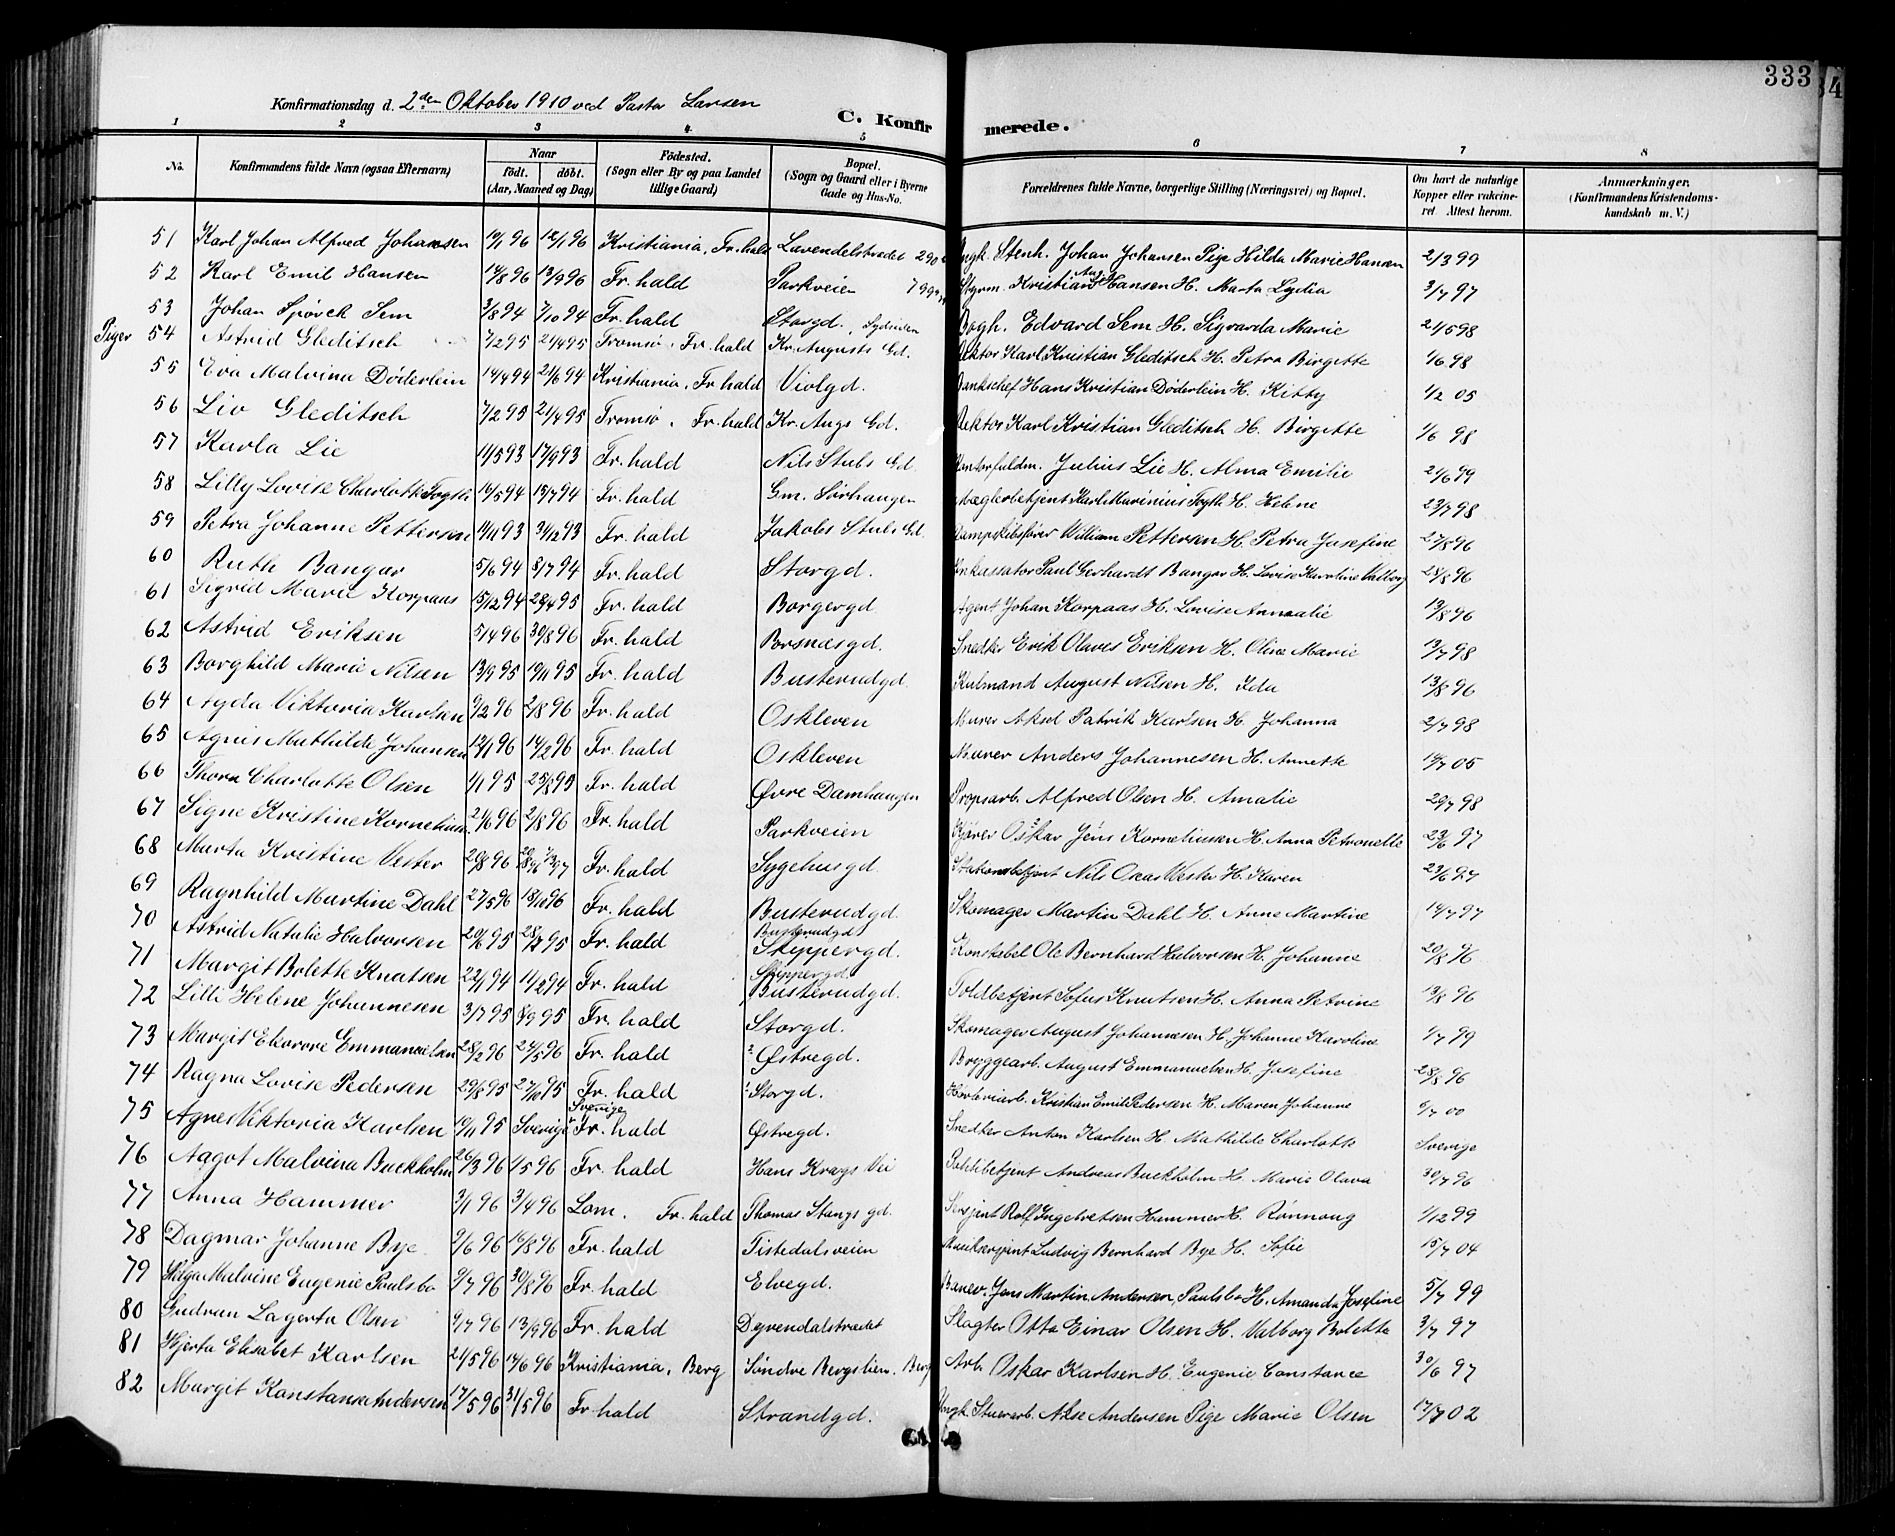 333
Konfirmationsdag d. 2den Oktober 1910 ved Pastor Larsen
C. Konfirmerede.
1 2 3 4 5 6 7 8
No. Konfirmandens fulde Navn (ogsaa Efternavn) Naar født. døbt. (Aar, Maaned og Dag) Födested. (Sogn eller By og paa Landet tillige Gaard) Bopæl. (Sogn og Gaard eller i Byerne Gade og Hus-No. Forældrenes fulde Navne, borgerlige Stilling (Næringsvei) og Bopæl. Om havt de naturlige Kopper eller vakcineret Attest herom. Anmærkninger. (Konfirmandens Kristendomskundskab m. V.)
51 Karl Johan Alfred Johansen 96 12/1 96 Kristiania, Fr.hald Lavendelstrædet 290 Ungk. Stenh. Johan Johansen Pige Hilda Marie Hansen 2/3 99
52 Karl Emil Hansen 14/8 96 13/9 96 Fr. hald Parkveien Styrm. Kristian Hansen H. Marta Lydia 3/7 97
53 Johan Spørck Sem 3/8 94 7/10 94 Fr. hald Storgd., Sydsiden Bogh. Edvard Sem H. Sigvarda Marie 21/5 98
Piger 54 Astrid Gleditsch 7/2 95 21/4 95 Tromsø, Fr. hald Kr. Augusts Gd. Rektor Karl Kristian Gleditsch H. Petra Birgette 1/6 98
55 Eva Malvina Döderlein 14/4 94 21/6 94 Kristiania, Fr. hald Violgd. Bankschef Hans Kristian Døderlein H. Kitty 1/2 05
56 Liv Gleditsch 7/2 95 21/4 95 Tromsø, Fr. hald Kr. Augs Gd. Rektor Karl Kristian Gleditsch H. Birgette 1/6 98
57 Karla Lie 11/5 93 17/9 93 Fr. hald Nils Stubs Gd. Kontorfuldm. Julius Lie H. Alma Emilie 21/6 99
58 Lilly Lovise Charlotte Fogth 14/5 94 15/7 94 Fr. hald Gm. Sørhaugen Mæglerbetjent Karl Marinius Fogth H. Helene 23/7 98
59 Petra Johanne Pettersen 14/11 93 31/12 93 Fr. hald Jakobs Stubs Gd. Dampskibsfører William Pettersen H. Petra Josefine 27/8 96
60 Ruth Bangar 5/6 94 8/7 94 Fr. hald Storgd. Inkassator Paul Gerhardt Bangar H. Lovise Karoline Valborg 28/8 96
61 Sigrid Marie Korpaas 15/12 94 28/4 95 Fr. hald Borgergd Agent Johan Korpaas H. Lovise Annalie 13/8 96
62 Astrid Eriksen 5/4 96 30/8 96 Fr. hald Borsnæsgd. Snedker Erik Olaves Eriksen H. Oline Marie 13/7 98
63 Borghild Marie Nilsen 13/9 95 10/11 95 Fr. hald Busterudgd. Kulmand August Nilsen H. Ida 13/8 96
64 Ayda Viktoria Karlsen 9/2 96 2/8 96 Fr. hald Oskleven Murer Aksel Patrik Karlsen H. Johanna 2/7 98
65 Agnes Mathilde Johansen 12/1 96 14/2 96 Fr. hald Oskleven Murer Anders Johannesen H. Annette 14/7 05
66 Thora Charlotte Olsen 1/1 95 25/8 95 Fr. hald Øvre Damhaugen Propsarb. Alfred Olsen H. Amalie 29/7 98
67 Signe Kristine Korneliussen 21/6 96 2/8 96 Fr. hald Parkveien Kjører Oskar Jens Korneliussen H. Anna Petronelle 23/6 97
68 Marta Kristine Vester 20/8 96 Fr. hald Sygehusgd Stationsbetjent Nils Oscar Vester H. Karen 23/6 97
69 Ragnhild Martine Dahl 27/5 96 18/10 96 Fr. hald Busterudgd. Skomager Martin Dahl H. Anne Martine 14/7 97
70 Astrid Natalie Halvorsen 20/6 95 28/7 95 Fr. hald Busterudgd Skippergd. Konstabel Ole Bernhard Halvorsen H. Johanne 20/8 96
71 Margit Bolette Knutsen 22/1 94 11/2 94 Fr. hald Skippergd Busterudgd. Toldbetjent Sofus Knutsen H. Anna Petrine 13/8 96
72 Lilli Helene Johannesen 3/7 95 8/9 95 Fr. hald Storgd. Skomager August Johannesen H. Johanne Karoline 1/7 99
73 Margit Ekorore Emmanuelsen 28/2 96 27/5 96 Fr. hald Østregd. Bryggearb. August Emmanuelsen H. Josefine 28/8 96
74 Ragna Lovise Pedersen 29/8 95 27/10 95 Fr. hald Storgd. Kristian Emil Pedersen H. Maren Johanne 6/7 00
75 Agnes Viktoria Karlsen 19/11 95 Sverige Sverige Fr. hald Østregd. Snedker Anton Karlsen H. Mathilde Charlotte Sverige
76 Aagot Malvina Buckholm 26/3 96 1/5 96 Fr. hald Hans Krags Vei Politibetjent Andreas Buckholm H. Marie Olava 30/7 96
77 Anna Hammer 3/1 96 3/4 96 Lom. Fr. hald Thomas Stangs gd. Sersjent Rolf Ingebretsen Hammer H. Rønnoug 1/12 99
78 Dagmar Johanne Bye 9/6 96 16/8 96 Fr. hald Tistedalsveien Musiksersjent Ludvig Bernhard Bye H. Sofie 15/7 04
79 Helga Malvine Eugenie Paulsbo 9/7 96 30/8 96 Fr. hald Elvegd. Banev. Jens Martin Andersen, Paulsbo H. Amanda Josefine 5/7 99
80 Gudrun Lagerta Olsen 9/7 96 13/9 96 Fr. hald Dyrendalstrædet Slagter Otto Einar Olsen H. Valborg Bolette 3/7 97
81 Hjerta Elisabet Karlsen 21/5 96 14/6 96 Kristiania, Berg Søndre Bergslien. Berg Arb. Oskar Karlsen H. Eugenie Constance 30/6 97
82 Margit Konstanse Andersen 17/5 96 31/5 96 Fr. hald Strandgd. Ungk. Stuerarb. Andersen Pige Marie Olsen 17/7 02